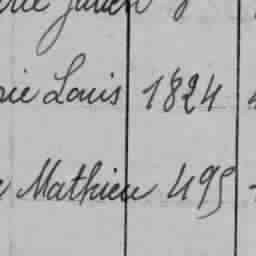 Julien
Louis 1824
Mathieu 495